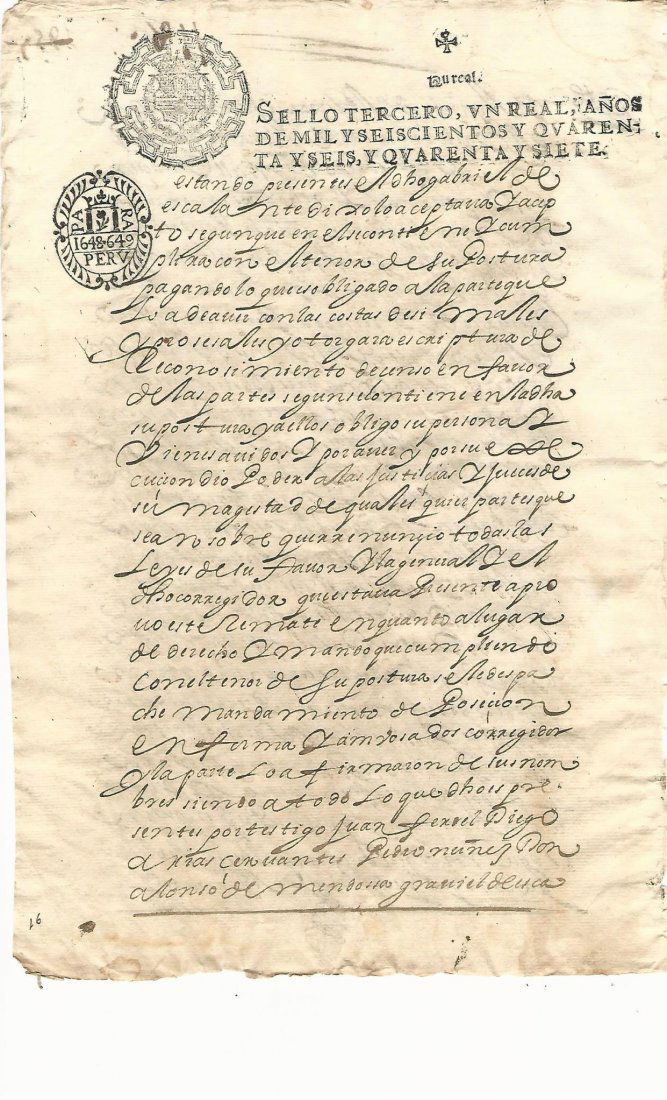 Un real.
SELLO TERCERO, VN REAL, AÑOS
DE MIL Y SEISCIENTOS Y QVAREN-
TA Y SEIS, Y QVARENTA Y SIETE.
PARA
1648-649
PERV
estando presentes el dho gabriel de
escalante dixo lo aceptava y acep
to segun que en el se contiene y cum
plira con el tenor de su Postura
pagando lo que es obligado a la parte que
lo a de aver con las costas desimales
y prosesales y otorgara escriptura de
Reconosimiento de censo en favor
de las partes segun se contiene en la dha
su postura y a ello obligo su persona y
Vienes avidos y por aver y por su exe
cucion dio Poder a las Justicias y Jueces de
su magestad de quales quier partes que
sean sobre que rrenunçio todas las
Leyes de su favor y la general y el
dho corregidor que estava Presente apro
vo este Remate en quanto a lugar
de derecho y mando que cumpliendo
con el tenor de su postura se le despa
che mandamiento de Posecion
en forma y amvos a dos corregidor
y la parte lo a firmaron de sus nom
bres siendo a todo lo que dho es pre
sentes por testigo Juan Diego
arias cervantes Pedro nuñez Don
alonso de Mendossa graviel de esca
16